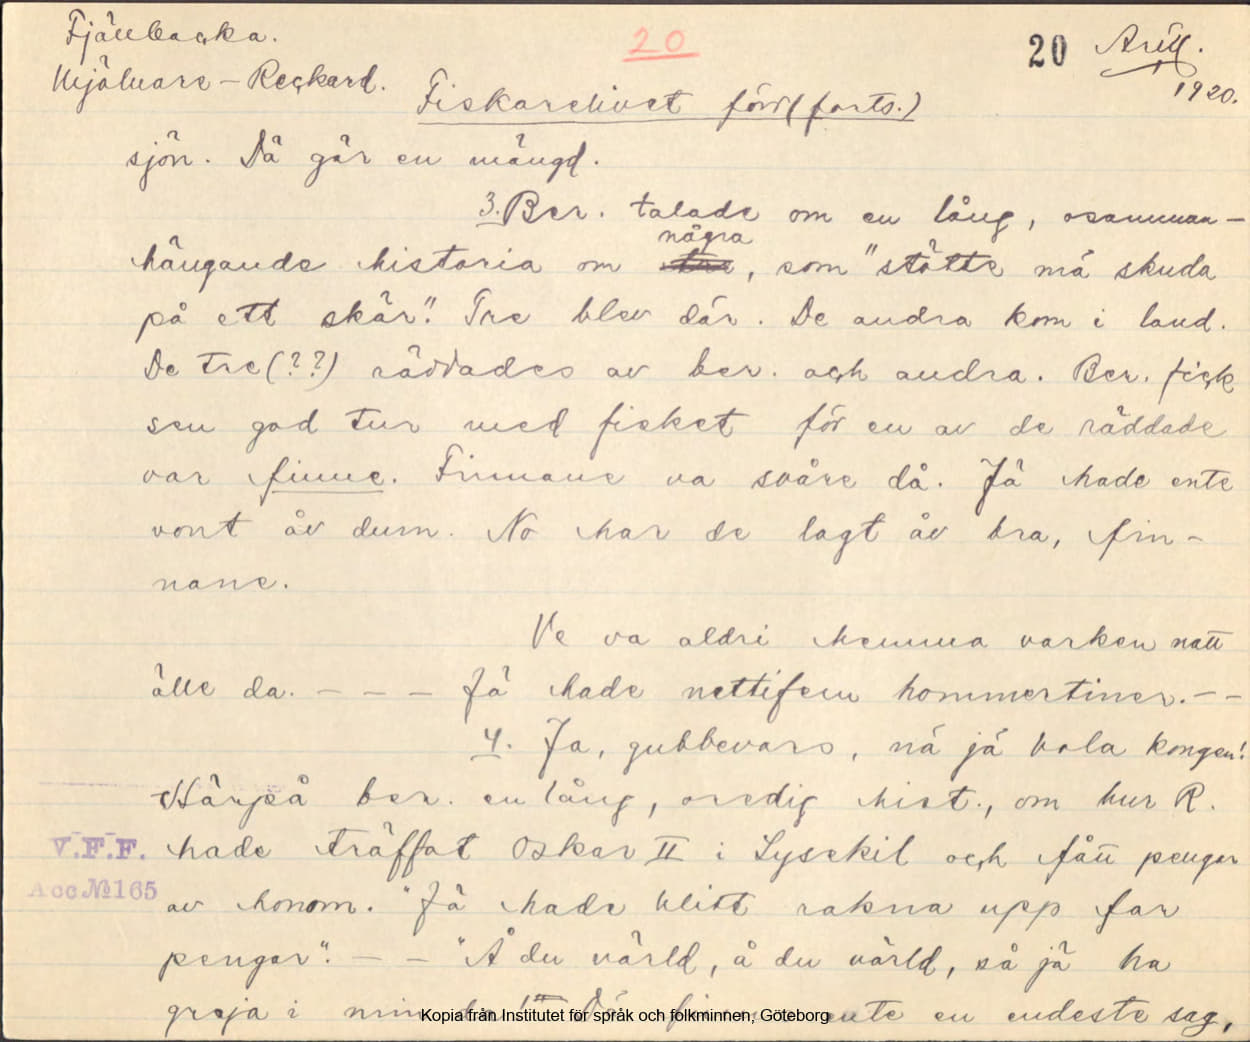 Fjällbacka.
20
20 Arill.
Mjölnare - Reckard.
1920.
Fiskarelivet förr (forts.)
sjön. Dä går en mängd.
3. Ber. talade om en lång, osamman-
hängande historia om några, som "stötte mä skuda
på ett skär". Tre blev där. De andra kom i land.
De tre (??) räddades av ber. och andra. Ber. fick
sen god tur med fisket för en av de räddade
var finne. Finnane va svåre då. Jä hade ente
vont åv dum. No har de lagt åv bra, fin-
nane.
Ve va aldri hemma varken natt
älle da. - - - Jä hade nettifem hommertiner. - -
4. Ja, gubbevars, nä jä tola kongen!
Härpå ber. en lång, oredig hist., om hur R.
hade träffat Oskar II i Lysekil och fått pengar
V.F.F.
Acc № 165
av honom. "Jä hade blitt rakna upp far
pengar". - - "Å du värld, å du värld, så jä ha
greja i min
ente en endeste sag,
Kopia från Institutet för språk och folkminnen, Göteborg